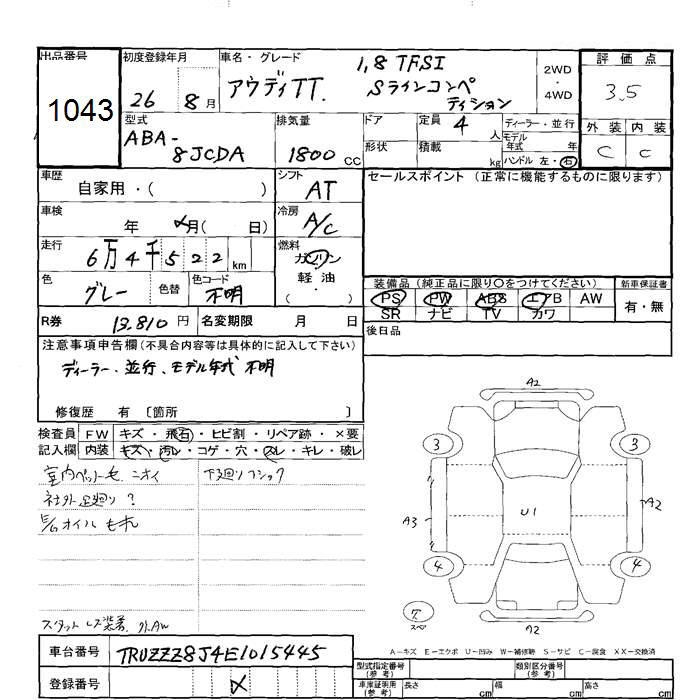 出品番号
1043
初度登録年月
26 8月
車名・グレード
アウディTT. 1,8 TFSI
Sラインコンペ
ティション
2WD
4WD
評価点
3.5
外装 内装
C C
型式
ABA-
8JCDA
排気量
1800 cc
ドア
定員 4 人
形状
積載 kg
ディーラー・並行
モデル
年式 年
ハンドル 左・右
車歴
自家用・( )
シフト
AT
セールスポイント(正常に機能するものに限ります)
車検
年 月( 日)
冷房
A/C
走行
6万4千522km
燃料
ガソリン
軽油
( ・ )
色
グレー
色替
色コード
不明
装備品(純正品に限り〇をつけてください)
PS PW ABS エアB AW
SR ナビ TV カワ
新車保証書
有・無
R券 13.810円
名変期限 月 日
後日品
注意事項申告欄(不具合内容等は具体的に記入して下さい)
ディーラー・並行、モデル年式 不明
修復歴 有 〔箇所 〕
検査員
記入欄
FW キズ・飛石・ヒビ割・リペア跡・×要
内装 キズ・汚レ・コゲ・穴・スレ・キレ・破レ
室内ペット毛、ニオイ
下廻りフショク
社外足廻り?
E/Gオイルもれ
スタットレス装着、外AW
A2
3 3
A3 U1 A2
4 4
7.
スペア
A2
A－キズ E－エクボ U－凹み W－補修跡 S－サビ C－腐食 XX－交換済
車台番号 TRUZZZ8J4E1015445
登録番号 メ
型式指定番号
(参考)
類別区分番号
(参考)
車庫証明用
(参考)
長さ cm 幅 cm 高さ cm